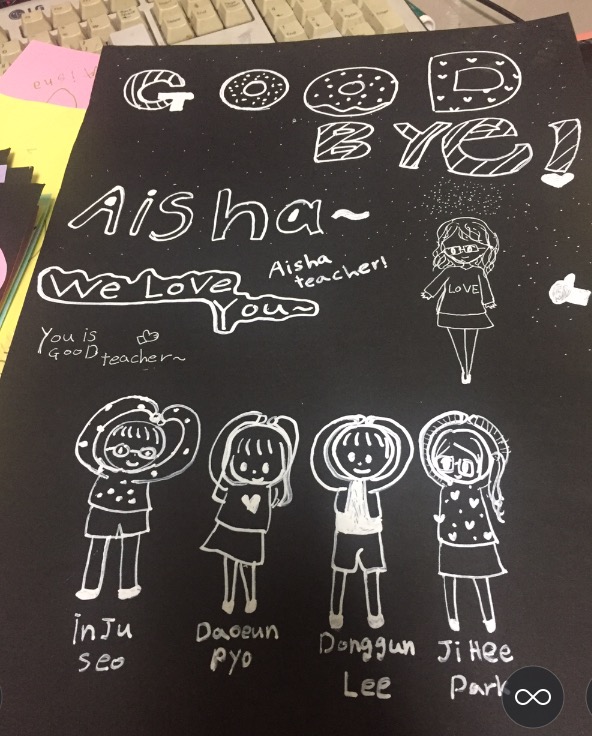 GOOD
BYE!
Aisha~
We Love
You~
Aisha
teacher!
You is
GooD teacher~
LOVE
inJu
seo
Daoeun
pyo
Donggun
Lee
JiHee
Park
Aisha